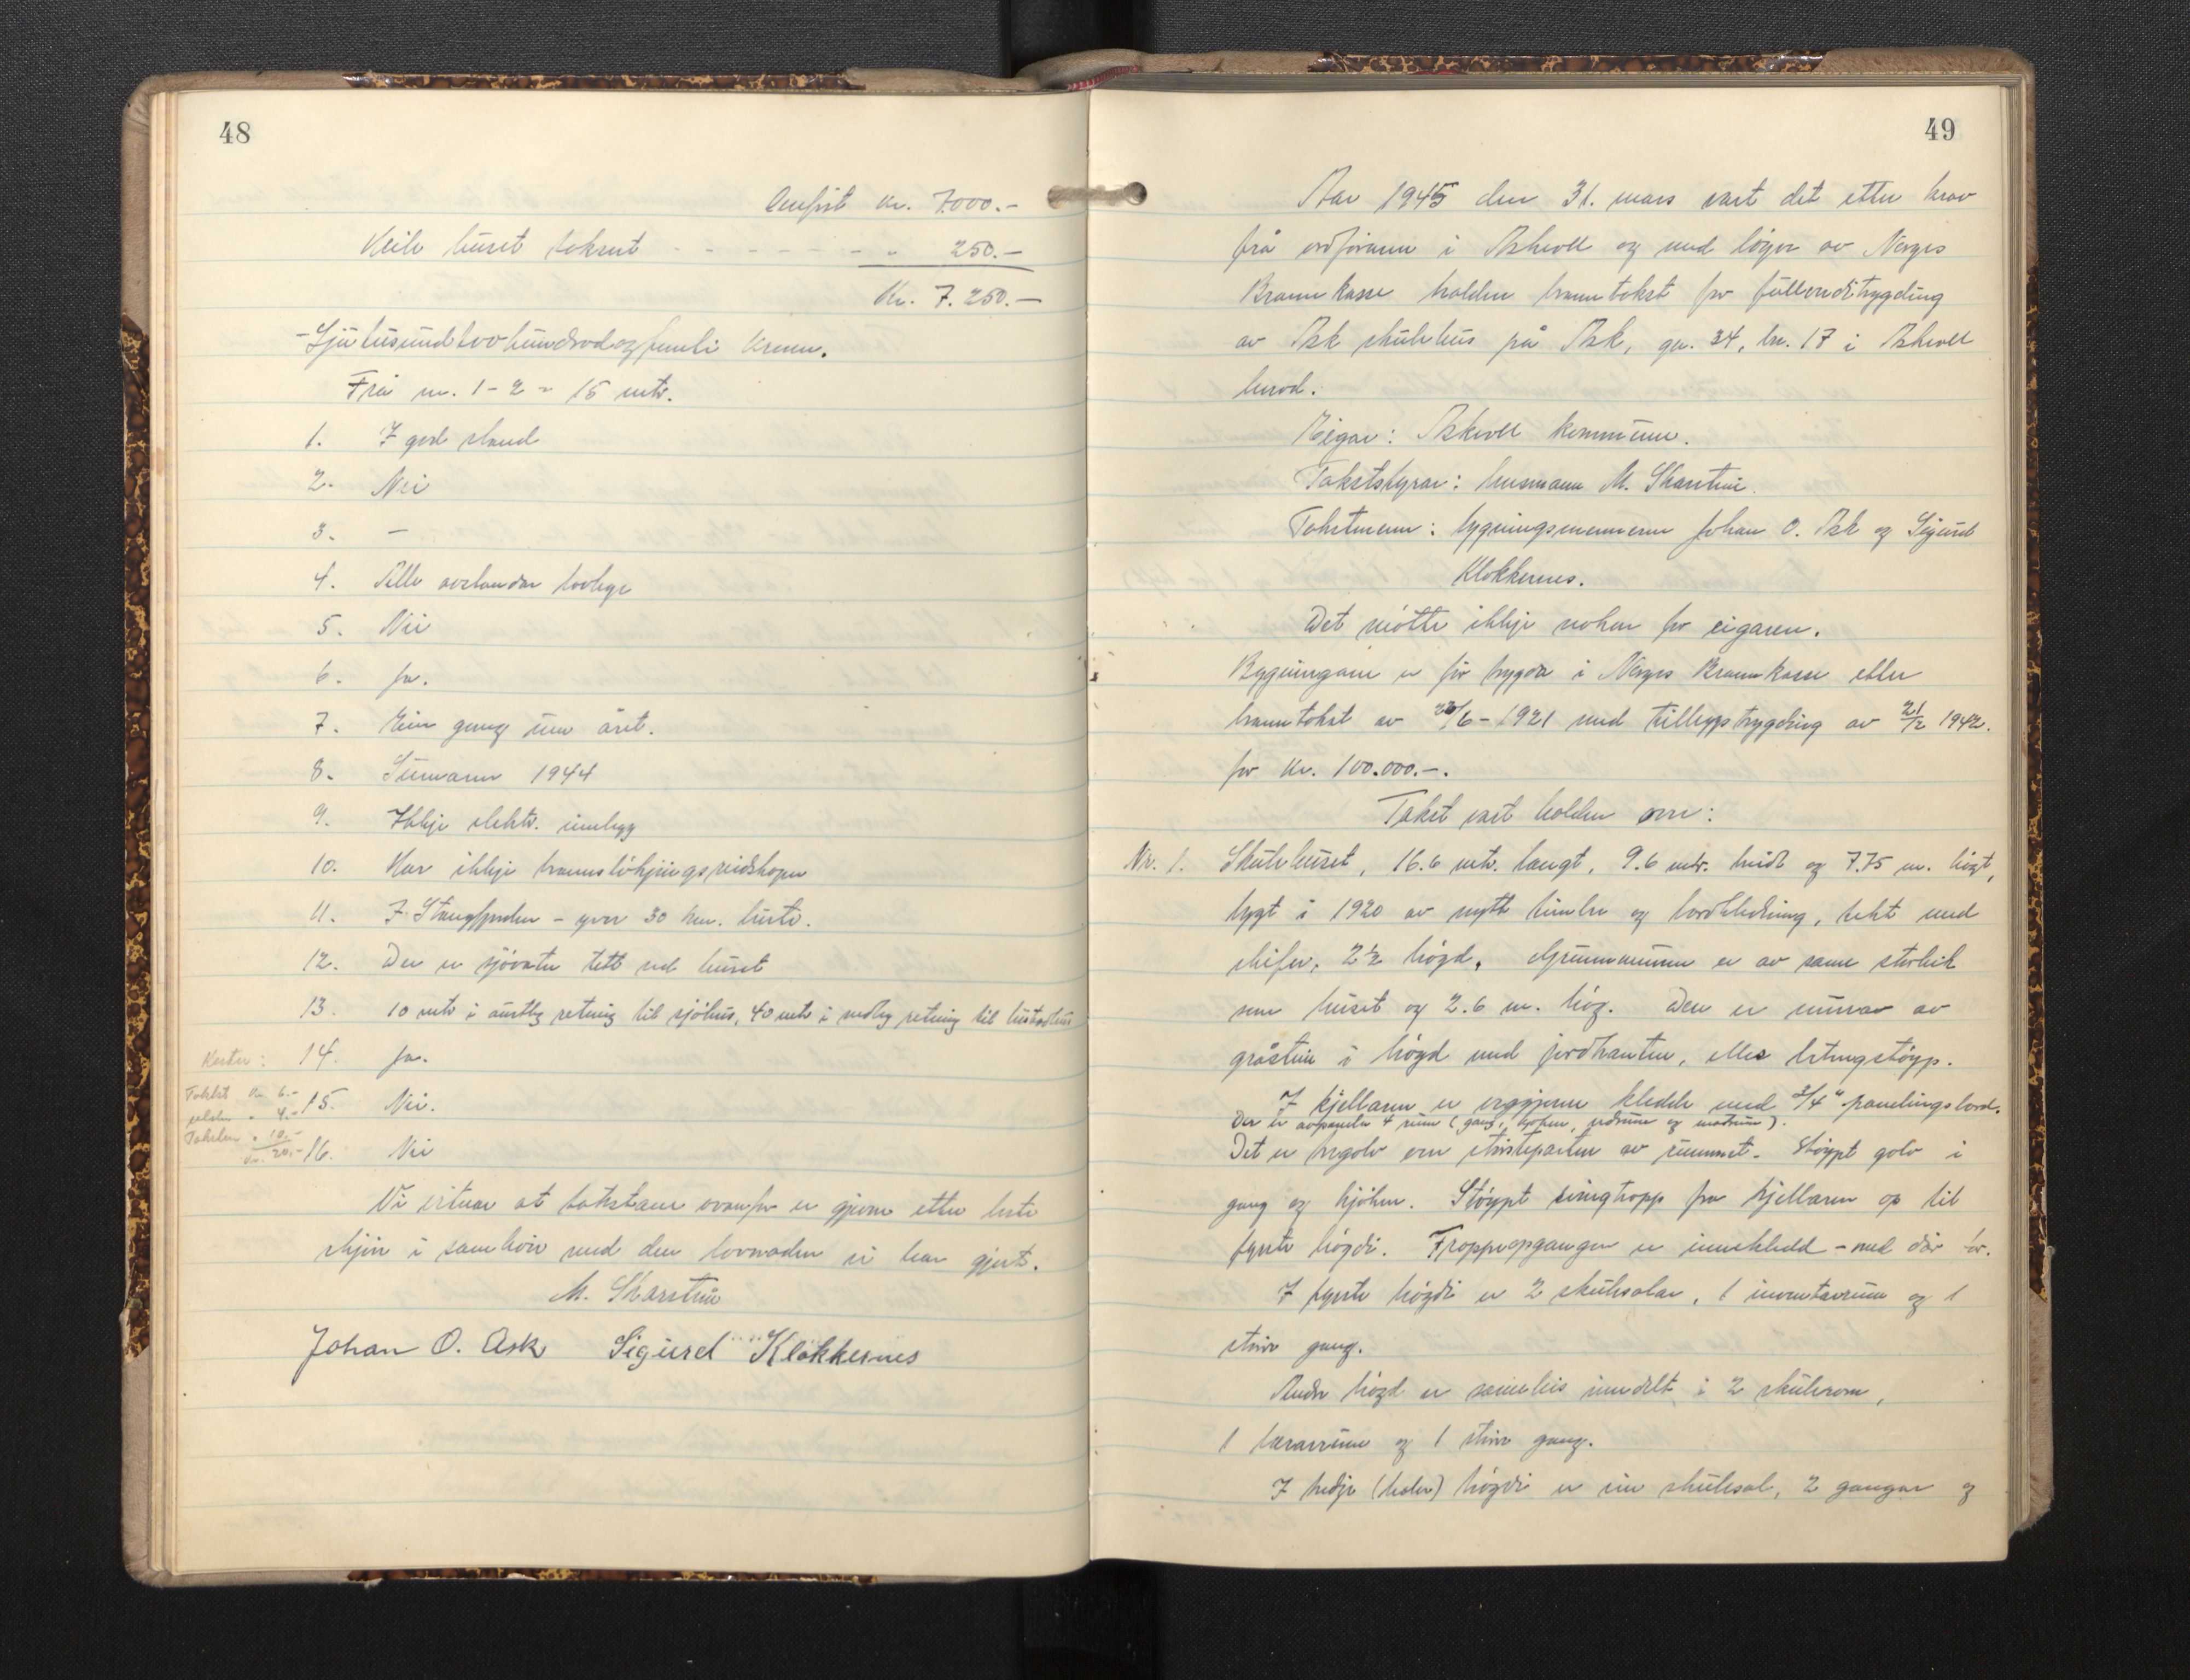 48
Avført kr. 7000.-
Heile huset takserut - - - - - - - " 250.-
Kr. 7.250.-
-Sjutusundtvohundradogfemti kroner.
Frå nr. 1-2 = 15 mtr.
1. I god stand
2. Nei
3. -
4. Alle avstandar lovlege
5. Nei
6. Ja.
7. Ein gong um året.
8. Sumaren 1944
9. Ikkje elektr. innlegg
10. Har ikkje brannsløkjingsreidskapar
11. I Stongfjorden - yver 30 km. borte.
12. Der er sjøvatn tett ved huset
13. 10 mtr i austleg retning til sjøhus, 40 mtr i nordleg retning til bustadhus
14. Ja.
15. Nei.
16. Nei
Takst kr. 6.-
" 4.-
" 10.-
Kr. 20.-
Vi vitnar at takstane ovanfor er gjevne etter beste
skjøn i samhøve med den lovnaden vi har gjort.
M. Skarstein
Johan O. Ask Sigurd Klokkernes
49
Aar 1945 den 31. mars vart det etter krav
frå ordføraren i Askvoll og med løyve av Norges
Brannkasse halden branntakst for fullverditrygding
av Ask skulehus på Ask, gn. 34, bn. 17 i Askvoll
herad.
Eigar: Askvoll kommune.
Takststyrar: lensmann M. Skarstein.
Takstmenn: bygningsmennene Johan O. Ask og Sigurd
Klokkernes.
Det møtte ikkje nokon for eigaren.
Bygningane er før trygda i Norges Brannkasse etter
branntakst av 23/6-1921 med tilleggstrygding av 21/2 1942.
for kr. 100.000.-.
Takst vart halden over:
Nr. 1. Skulehuset, 16.6 mtr. langt, 9.6 mtr. breidt og 7.75 m. høgt,
bygt i 1920 av nytt timber og bordkledning, tekt med
skifer, 2½ høgd. Grunnmuren er av same storleik
som huset og 2.6 m. høg. Den er murar av
gråstein i høgd med jordkanten, elles betongstøyp.
I kjellaren er veggjerne kledde med 3/4" panelingsbord.
Der er avpanela 4 rum (gang, kjøken, vedrum og matrum).
Det er tregolv over størsteparten av rummet. Støypt golv i
gang og kjøken. Støypt svingtropp fra kjellaren op til
fyrste høgdi. Troppeopgangen er innekledd - med dør for.
I fyrste høgdi er 2 skulesalar, 1 inventarrum og 1
større gang.
Andre høgd er sameleis inndelt i 2 skulerom,
1 lærarrum og 1 større gang.
I tredje (halve) høgdi er ein skulesal, 2 gangar og